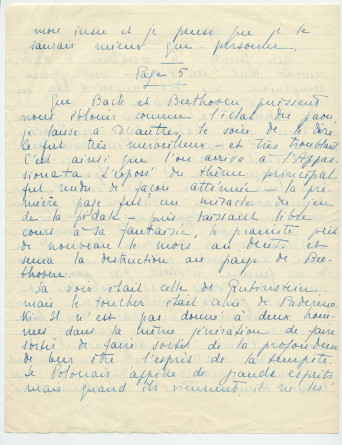 mon insu et je pense que je le
saurais mieux que personne.
Page 5
Que Bach et Beethoven puissent
nous éblouir comme l'éclat du jour
je laisse à d'autres le soin de le dire
le fut très merveilleux - et très troublant
C'est ainsi que l'on arriva à l'Appas-
sionata L'exposé du thème principal
fut rendu de façon atténuée - la pre-
mière page fut un miracle de jeu
de la pédale - puis laissant libre
cours à sa fantaisie, le pianiste prit
de nouveau le mors au dents et
sema la destruction au pays de Bee-
thoven.
Sa voix était celle de Rubinstein
mais le toucher était celui de Paderews-
ki - Il n'est pas donné à deux hom-
mes dans la même génération de faire
sortir de faire sortir de la profondeur
de leur être l'esprit de la tempête.
Le Polonais appelle de grands esprits
mais quand ils viennent il ne les